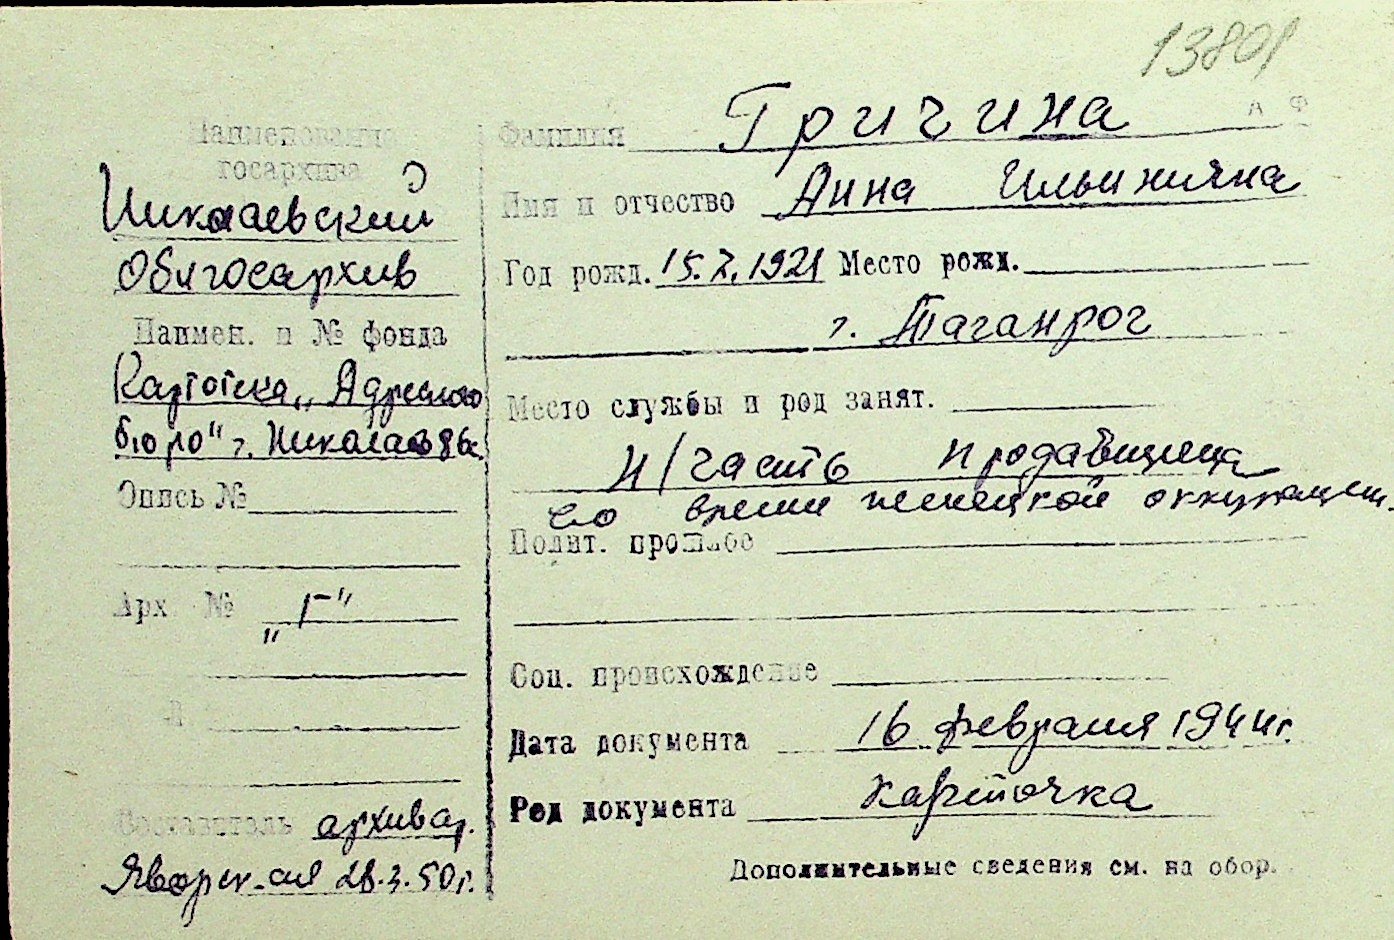 13801
А Ф
Наименование
госархива
Николаевский
Облгосархив
Наимен. и № фонда
Картотека „Адресного
бюро" г. Николаев
Опись №
Арх №
„Г"
Л.
Составитель архивар.
50г.
Фамилия Гричина
Имя и отчество Анна Ильинична
Год рожд. 15.2.1921 Место рожд.
г. Таганрог
Место службы и род занят.
н/часть продавщица
во время немецкой оккупации.
Полит. прошлое
Соц. происхождение
Дата документа 16 февраля 1944г.
Род документа карточка
Дополнительные сведения см. на обор.